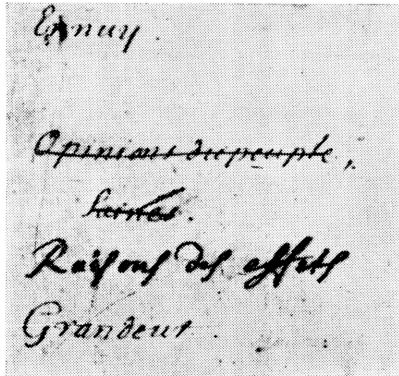 Ennuy.
Opinions du peuple,
Saines.
Raisons des effets
Grandeur